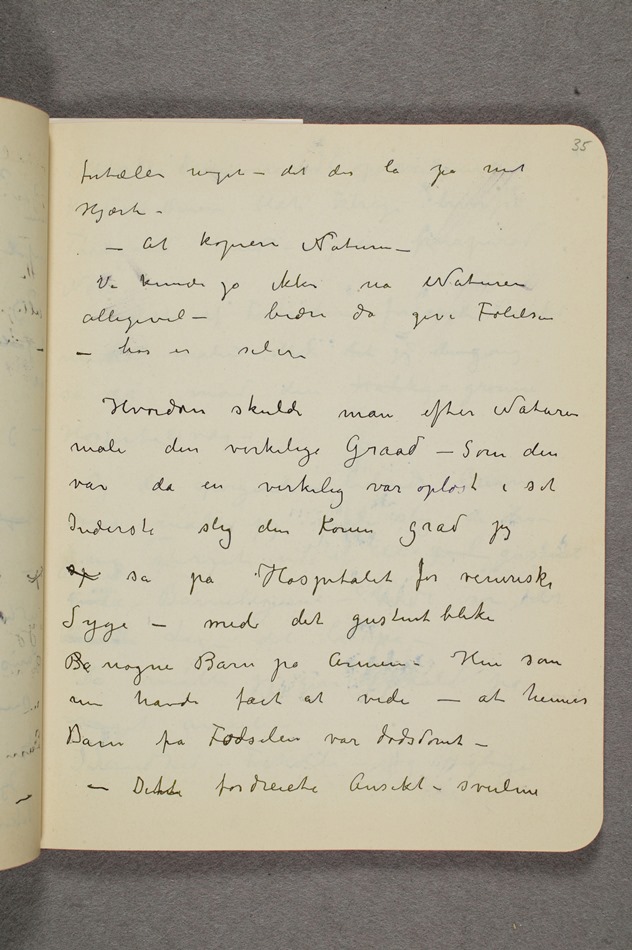 35
fortælle noget – det der lå på mit
Hjærte –
– At kopiere Naturen –
Vi kunde jo ikke nå Naturen
alligevel – bedre da give Følelsen
– hos en selven
Hvordan skulde man efter Naturen
male den virkelige Graad – Som den
var da en virkelig var opløst i sit
Inderste slig den Konen gråd jeg
så på Hospitalet for veneriske
Syge – med det gustent bleke
nøgne Barn på Armen – Hun som
nu havde fået at vide – at hennes
Barn fra Fødselen var dødsdømt –
– Dette fordreiete Ansikt – svulne